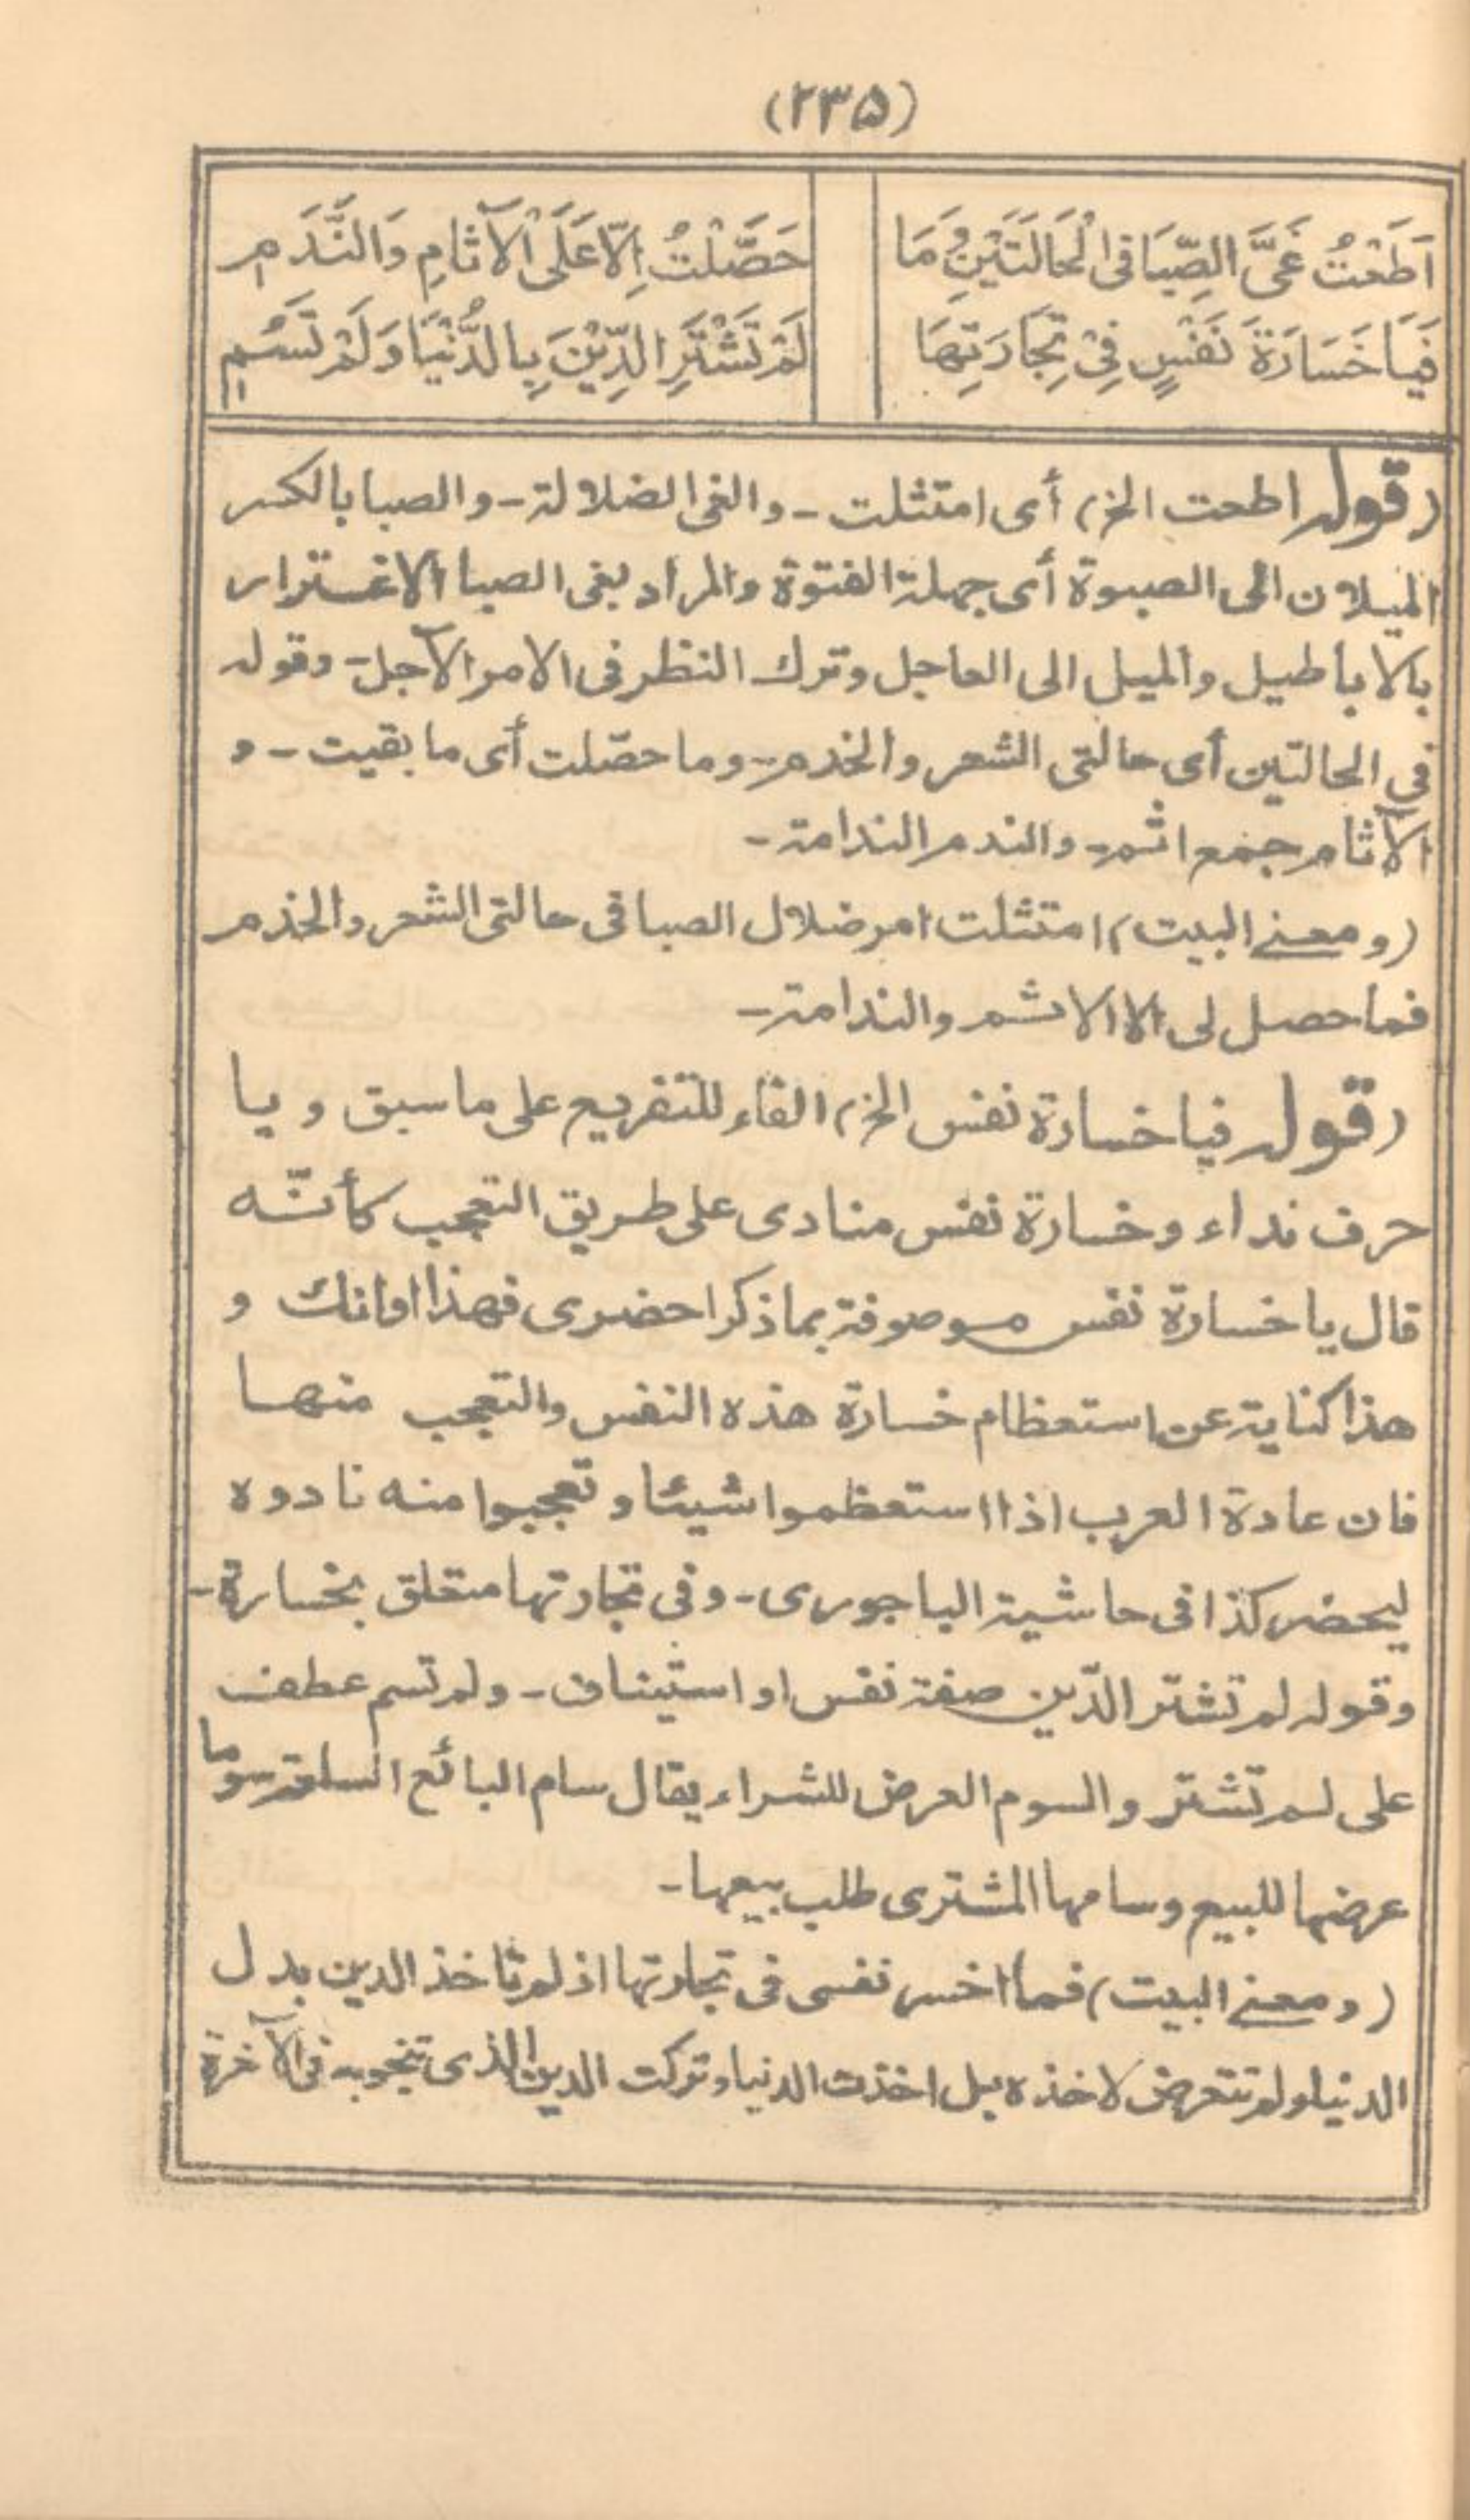 (٢٣٥)
اَطَعْتُ غَيَّ الصِّبَا فِی الْحَالَتَيْنِ وَمَا حَصَّلْتُ اِلَّا عَلَی الْآثَامِ وَالنَّدَمِ
فَيَا خَسَارَةَ نَفْسٍ فِیْ تِجَارَتِهَا لَمْ تَشْتَرِ الدِّيْنَ بِالدُّنْيَا وَلَمْ تَسُمِ
(قوله اطعت الخ) أی امتثلت ـ والغی الضلالة ـ والصبا بالکسر
الميلان الی الصبوة أی جهلة الفتوة والمراد بغی الصبا الاغترار
بالاباطيل والميل الی العاجل وترك النظر فی الامر الآجل ـ وقوله
فی الحالتين أی حالتی الشعر والخدم ـ وما حصّلت أی ما بقيت ـ و
الآثام جمع اثم ـ والندم الندامة ـ
(ومعنے البيت) امتثلت امر ضلال الصبا فی حالتی الشعر والخذم
فما حصل لی الا الاثم والندامة ـ
(قوله فيا خسارة نفس الخ) الفاء للتفريع علی ما سبق و يا
حرف نداء وخسارة نفس منادی علی طريق التعجب كأنّه
قال يا خسارة نفس موصوفة بما ذكر احضری فهذا اوانك و
هذا كناية عن استعظام خسارة هذه النفس والتعجب منها
فان عادة العرب اذا استعظموا شيئا وتعجبوا منه نادوه
ليحضر كذا فی حاشية الباجوری ـ وفی تجارتها متعلق بخسارة ـ
وقوله لم تشتر الدّين صفة نفس او استيناف ـ ولم تسم عطف
علی لم تشتر والسوم العرض للشراء يقال سام البائع السلعة سوما
عرضها للبيع وسامها المشتری طلب بيعها ـ
(ومعنے البيت) فما اخسر نفسی فی تجارتها اذ لم تاخذ الدين بدل
الدنيا ولم تتعرض لاخذه بل اخذت الدنيا وتركت الدين الذی تنجو به فی الآخرة